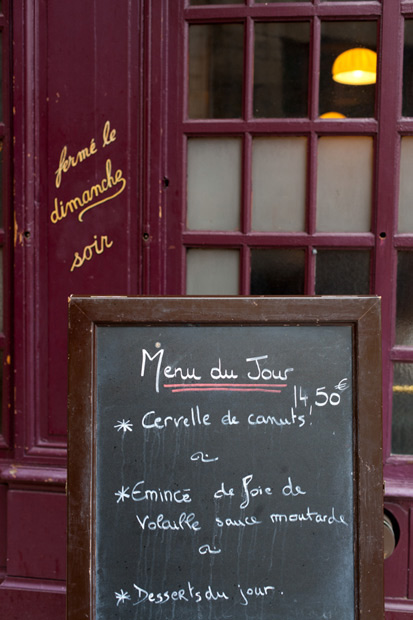 fermé le
dimanche
soir
Menu du Jour
14,50€
* Cervelle de canuts.
* Emincé de foie de
Volaille sauce moutarde
* Desserts du jour.